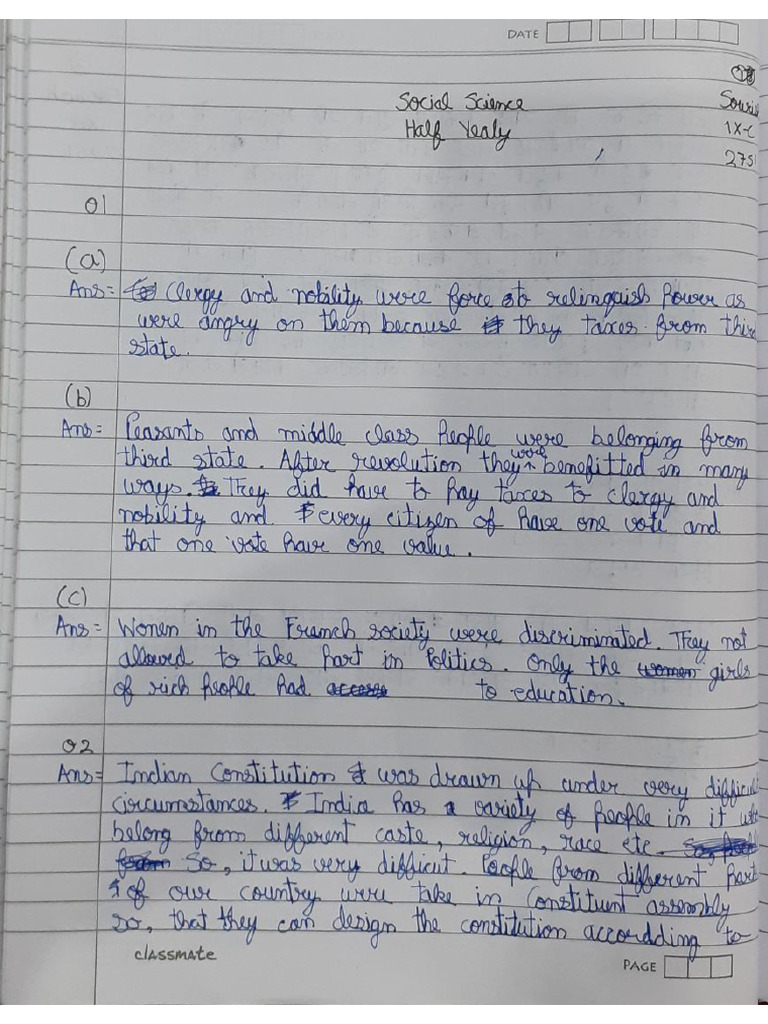 DATE
Social Science
Half Yealy
1X-C
Q1
(a)
Ans= Clergy and nobility were force to relinquish power as
were angry on them because they taxes from third
state.
(b)
Ans= Peasants and middle class People were belonging from
third state. After revolution they were benefitted in many
ways. They did have to pay taxes to clergy and
nobility and every citizen of have one vote and
that one vote have one value.
(c)
Ans= Women in the Franch society were discriminated. They not
allowed to take part in Politics. Only the women girls
of rich people had access to education.
Q2
Ans= Indian Constitution was drawn up under very difficul
circumstances. India has a variety of people in it
belong from different caste, religion, race etc.
So, it was very difficult. People from different part
of our country were take in Constituent assembly
so, that they can design the constitution accordding to
classmate
PAGE